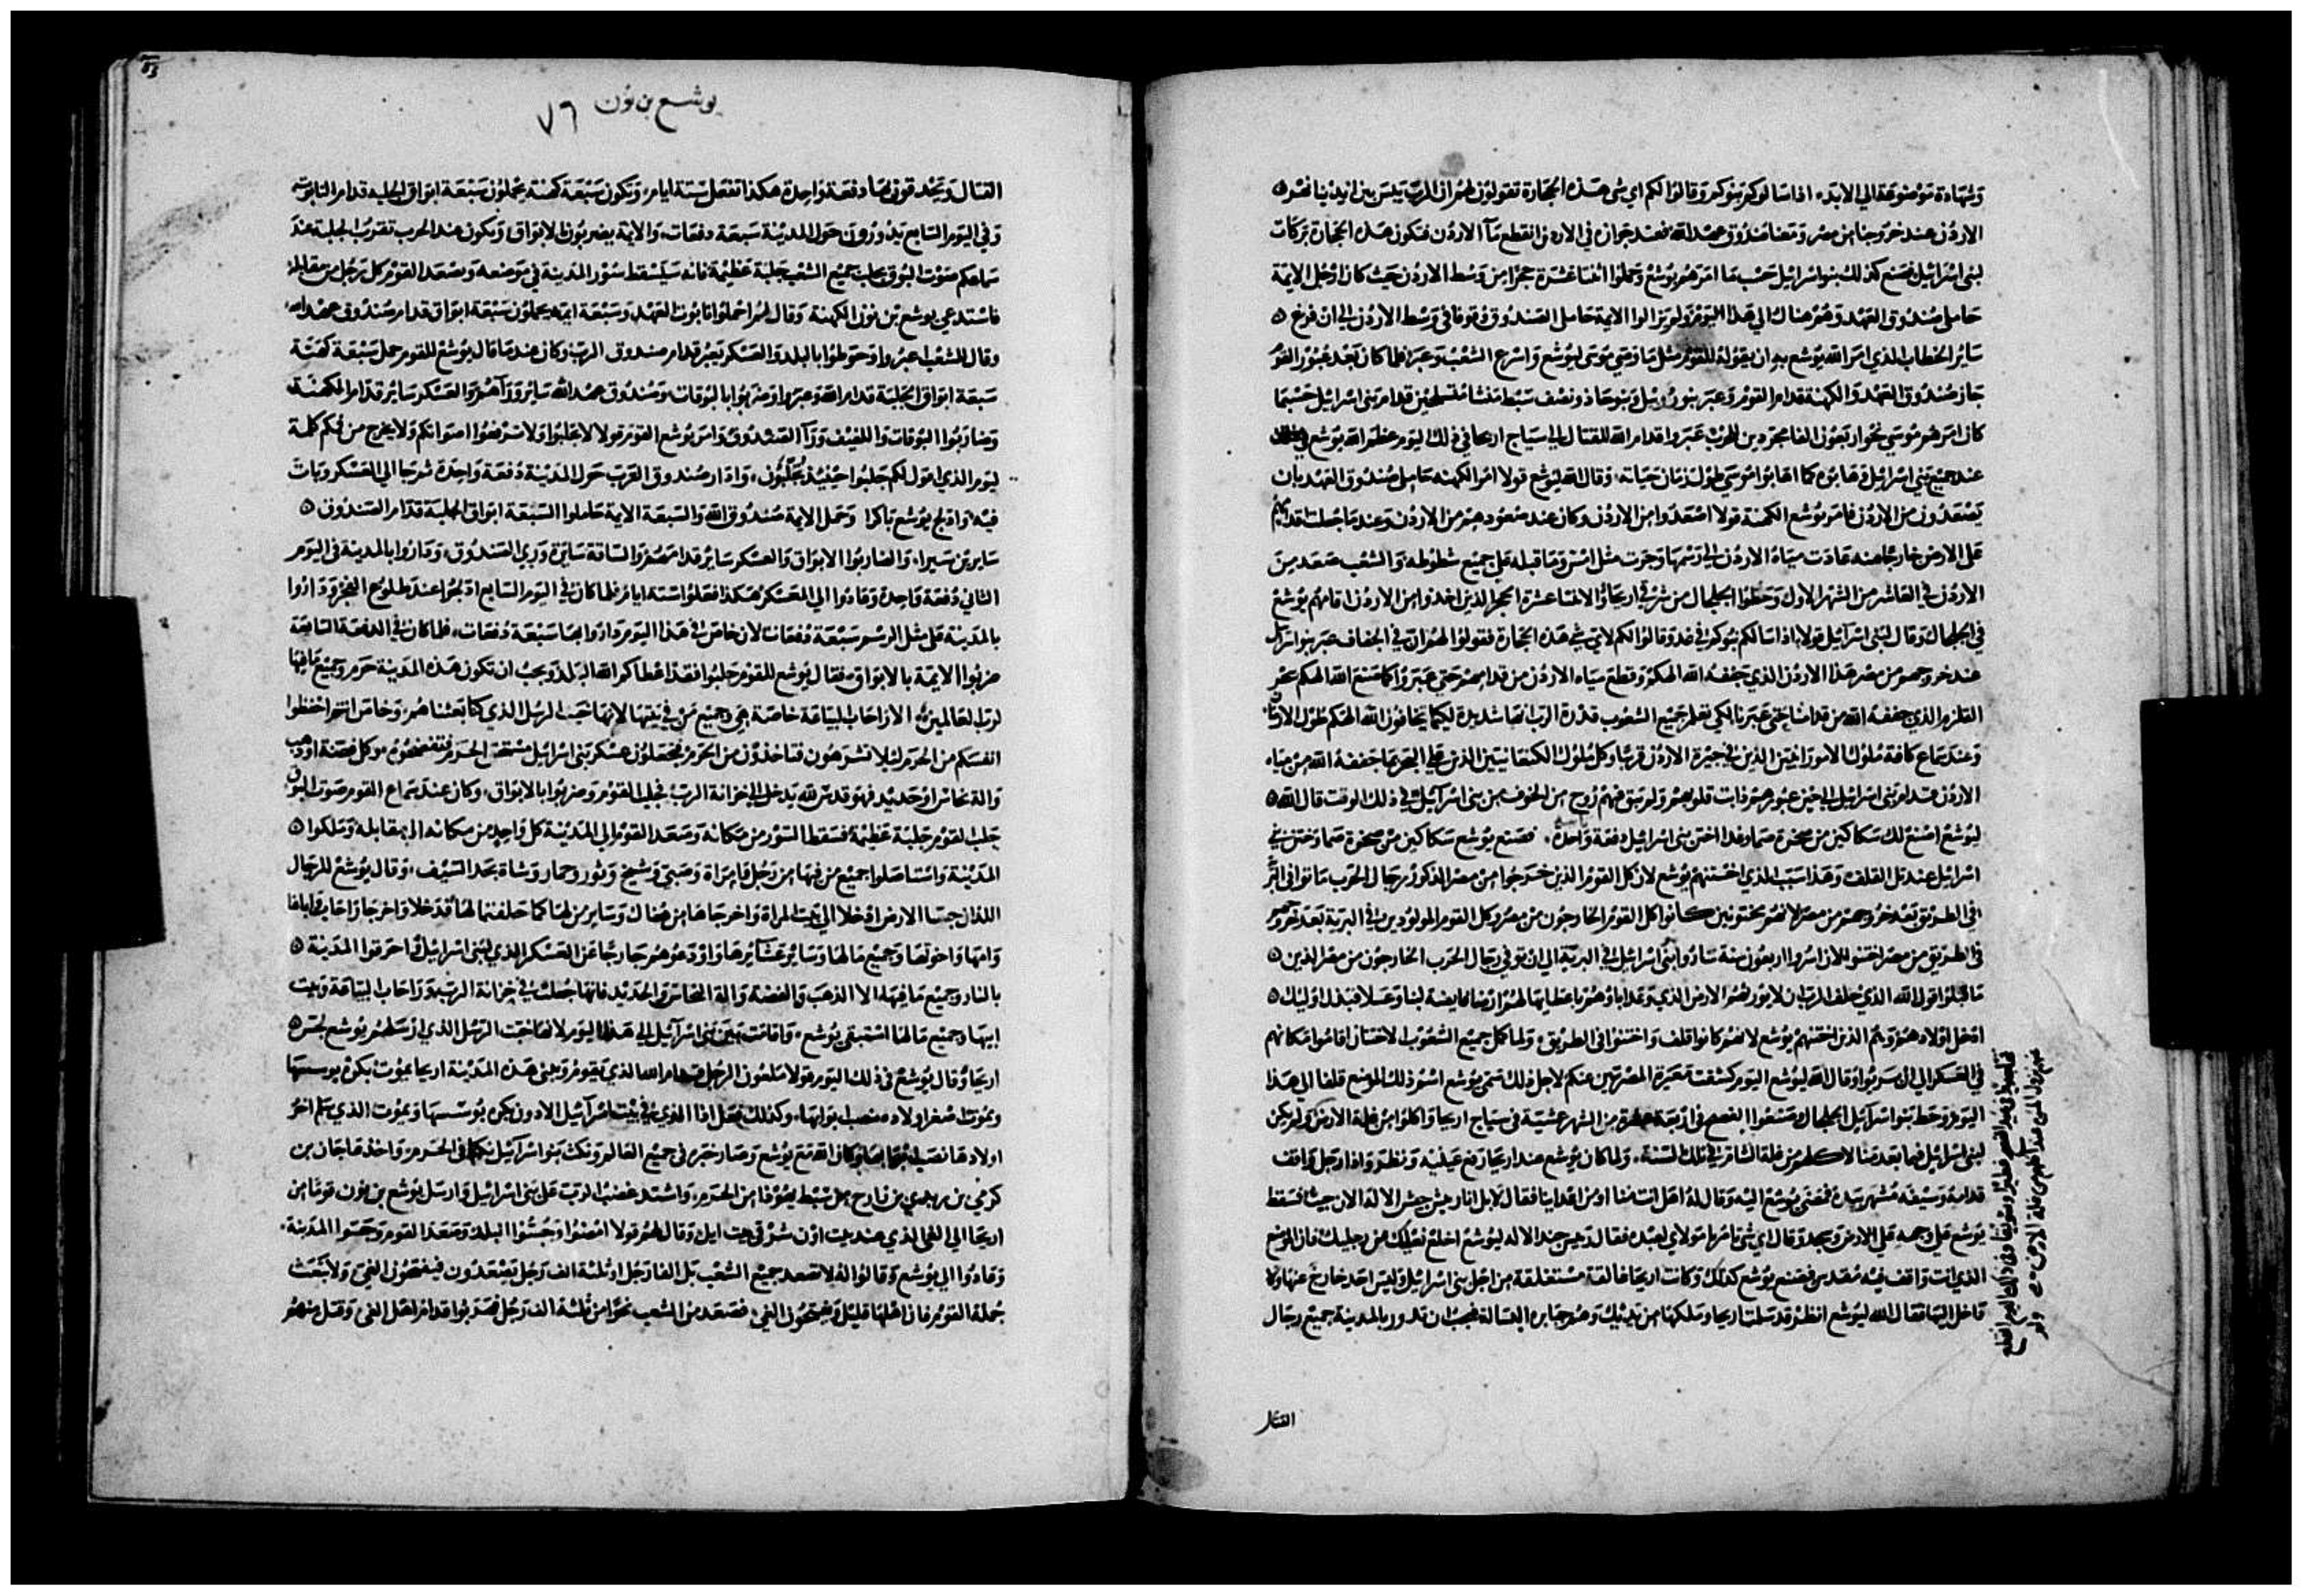 وشهادة موضوعة الي الابد، اذا سالوكم بنوكم وقالوا لكم اي شي هذه الحجارة تقولون لهم ان المرب يبس بين ايدينا نهر
الاردن عند خروجنا من مصر ومعنا صندوق عهد الله فعند جوازه في الاردن انقطع ماء الاردن فتكون هذه الحجارة بركات
لبني اسرائيل فصنع كذلك بنو اسرائيل حسب ما امرهم يوشع وحملوا اثنا عشرة حجرا من وسط الاردن حيث كان ارجل الايمة
حاملي صندوق العهد وهم هناك الي هذا اليوم ولم يزالوا الايمة حامل الصندوق وقوفا في وسط الاردن الي ان فرغ
ساير الخطاب الذي امر الله يوشع به ان يقوله للقوم مثل ما وصي موسي ليوشع واسرع الشعب وعبر، فلما كان بعد عبور القوم
جاز صندوق العهد والكهنة قدام القوم وعبر بنو روبيل وبنو جاذ ونصف سبط منشا متسلحين قدام بني اسرائيل حسبما
كان امرهم موسي نحو اربعون الفا مجردين للحرب عبروا قدام الله للقتال الي سياج اريحا في ذلك اليوم عظم الله يوشع
عند جميع بني اسرائيل وهابوه كما اهابوا موسي طول زمان حياته، وقال الله ليوشع قولا امر الكهنة حامل صندوق العهد بان
يصعدون من الاردن فامر يوشع الكهنة قولا اصعدوا من الاردن وكان عند صعودهم من الاردن وعند ما جعلت
علي الارض خارجا منه عادت مياه الاردن الي رسمها وجرت مثل امس وما قبله علي جميع شطوطه والشعب صعد من
الاردن في العاشر من الشهر الاول وحطوا الجلجال من شرقي اريحا والاثنا عشرة الحجر الذين اخذوا من الاردن اقامهم يوشع
في الجلجال وقال لبني اسرائيل قولا اذا سالكم بنوكم في غد وقالوا لكم لاي شي هذه الحجارة فقولوا لهم ان في الجفاف عبر بنو اسرائيل
عند خروجهم من مصر هذا الاردن الذي جففه الله الهكم وقطع مياه الاردن من قدامهم حتي عبروا كما صنع الله الهكم بحر
القلزم الذي جففه الله من قدامنا حتي عبرنا لكي يعلم جميع الشعوب قدرة الرب انها شديدة لكيما يخافون الله الهكم طول
وعند سماع كافة ملوك الامورانيين الذين في جيرة الاردن قربا وكل ملوك الكنعانيين الذين علي البحر بما جففه الله من مياه
الاردن قدام بني اسرائيل الي حين عبورهم ذابت قلوبهم ولم يبق فيهم روح من الخوف من بني اسرائيل، في ذلك الوقت قال الله
ليوشع اصنع لك سكاكين من صخرة صما وعد اختن بني اسرائيل دفعة واحدة، فصنع يوشع سكاكين من صخرة صما وختن بني
اسرائيل عند تل القلف، وهذا سبب الذي اختنهم يوشع لان كل القوم الذين خرجوا من مصر الذكور رجال الحرب ماتوا في البر
في الطريق بعد خروجهم من مصر لانهم مختونين كانوا كل القوم الخارجون من مصر وكل القوم المولودين في البرية بعد خروجهم
في الطريق من مصر اربعون سنة ساروا بني اسرائيل في البرية الي ان توفي رجال الحرب الخارجون من مصر الذين
ما قبلوا قول الله الذي حلف الرب ان لا يورثهم الارض الذي وعد اباوهم باعطايها لهم ارضا فايضة لبنا وعسلا فبدل اوليك
ادخل اولادهم وهم الذين اختنهم يوشع لانهم كانوا قلف واختنوا في الطريق، ولما كمل جميع الشعوب لاختتان اقاموا مكانهم
في العسكر الي ان بروا، وقال الله ليوشع اليوم كشفت معيرة المصريين عنكم لاجل ذلك سمي يوشع اسم ذلك الموضع قلفا الي هذا
اليوم وحط بنو اسرائيل الجلجال وصنعوا الفصح في اربعة عشرة من الشهر عشية في سياج اريحا واكلوا من غلة الارض ولم يكن
لبني اسرائيل فيما بعد منا لاكلهم من غلة الشام في تلك السنة، ولما كان يوشع عند اريحا رفع عينيه ونظر واذا رجل واقف
قدامه وسيفه مشهر بيده فمضي يوشع اليه وقال له اهل انت منا او من اعداينا فقال لا بل انا رييس جيش الاله الان جيت فسقط
يوشع علي وجهه علي الارض وسجد وقال اي شي تامرها مولاي لعبده فقال رييس جند الاله ليوشع اخلع نعليك من رجليك فان الموضع
الذي انت واقف فيه مقدس فصنع يوشع كذلك وكانت اريحا غالقة مستغلقة من اجل بني اسرائيل وليس احد خارج عنها ولا
داخل اليها فقال الله ليوشع انظر قد سلمت اريحا وملكها من يديك وهم جبابرة القتالة فيجب ان تدور بالمدينة جميع رجال
القتال
يوشع بن نون ٧٦
القتال وتحدقون بها دفعة واحدة هكذا تفعل ستة ايام، وتكون سبعة كهنة يحملون سبعة ابواق الجلبة قدام التابوت
وفي اليوم السابع يدورون حول المدينة سبعة دفعات، والايمة يضربون بالابواق ويكون عند الحرب تقترب الجلبة عند
سماعكم صوت البوق يجلب جميع الشعب جلبة عظيمة فانه سيسقط سور المدينة في موضعه ويصعد القوم كل رجل من مقابله
فاستدعي يوشع بن نون الكهنة وقال لهم احملوا تابوت العهد وسبعة ايمة يحملون سبعة ابواق قدام صندوق عهد الله
وقال للشعب اعبروا وحوطوا بالبلد والعسكر يعبر قدام صندوق الرب وكان عندما قال يوشع للقوم حمل سبعة كهنة
سبعة ابواق الجلبة قدام الله وعبروا وضربوا بالبوقات، وصندوق عهد الله ساير وراهم والعسكر ساير قدام الكهنة
وضاربوا البوقات واللفيف ورا الصندوق وامر يوشع القوم قولا لا تجلبوا ولا ترفعوا اصواتكم ولا يخرج من فمكم كلمة
ليوم الذي اقول لكم جلبوا حينيذ تجلبون، وادار صندوق الرب حول المدينة دفعة واحدة ثم جا الي العسكر وبات
فيه وادلج يوشع باكرا وحمل الايمة صندوق الله والسبعة الايمة حاملوا السبعة ابواق الجلبة قدام الصندوق
سايرين سيرا، والضاربوا الابواق والعسكر ساير قدامهم والساقة سايرة وراي الصندوق، وداروا بالمدينة في اليوم
الثاني دفعة واحدة وعادوا الي المعسكر هكذا فعلوا ستة ايام فلما كان في اليوم السابع ادلجوا عند طلوع الفجر وداروا
بالمدينة علي مثل الرسم سبعة دفعات لان خاص في هذا اليوم داروا بها سبعة دفعات، فلما كان في الدفعة السابعة
ضربوا الايمة بالابواق، فقال يوشع للقوم جلبوا فقد اعطاكم الله البلد ويجب ان تكون هذه المدينة حرم وجميع ما فيها
لرب العالمين الا راحاب البياعة خاصة هي وجميع من في بيتها لانها خبت الرسل الذي كنا بعثناهم، وخاص انتم احفظوا
انفسكم من الحرم ليلا تشرهون فتاخذون من الحرم فتجعلون عسكر بني اسرائيل مستحق الحرم فتفضحوه وكل فضة او ذهب
والة نحاس او حديد فهو قدس لله يدخل الي خزانة الرب، فجلب القوم وضربوا بالابواق، وكان عند سماع القوم صوت البوق
جلب القوم جلبة عظيمة فسقط السور من مكانه وصعد القوم الي المدينة كل واحد من مكانه الي مقابله وملكوا
المدينة واستاصلوا جميع من فيها من رجل وامراة وصبي وشيخ وثور وحمار وشاة بحد السيف، وقال يوشع للرجال
اللذان جسا الارض ادخلا الي بيت المراة واخرجاها من هناك وساير من لها كما حلفتما لها فدخلا واخرجا راحاب واباها
وامها واخوتها وجميع ما لها وساير عشايرها واودعوهم خارجا عن العسكر الذي لبني اسرائيل واحرقوا المدينة
بالنار وجميع ما فيها الا الذهب والفضة والة النحاس والحديد فانها جعلت في خزانة الرب، وراحاب البياعة وبيت
ابيها وجميع ما لها استبقي يوشع، واقامت بين بني اسرائيل الي هذا اليوم لانها خبت الرسل الذي ارسلهم يوشع لجس
اريحا، وقال يوشع في ذلك اليوم قولا ملعون الرجل قدام الله الذي يقوم ويبني هذه المدينة اريحا بموت بكره يوسسها
وبموت اصغر اولاده ينصب بوابها، وكذلك فعل
اولادها نصب ابوابها وكان الله مع يوشع وصار خبره في جميع العالم ونكث بنو اسرائيل نكثا في الحرم، واخذ عاجان بن
كرمي بن من سبط يهوذا من الحرم، واشتد غضب الرب علي بني اسرائيل وارسل يوشع بن نون قوما من
اريحا الي الغي الذي عند بيت اون شرقي بيت ايل وقال لهم قولا امضوا وجسوا البلد وصعد القوم وجسوا المدينة
وعادوا الي يوشع وقالوا له لا تصعد جميع الشعب بل الفا رجل او ثلثة الف رجل يصعدون فيفتحون الغي ولا تبعث
جملة القوم فان اهلها قليل، فصعد من الشعب نحوا من ثلثة الف رجل فهربوا قدام اهل الغي وقتل منهم